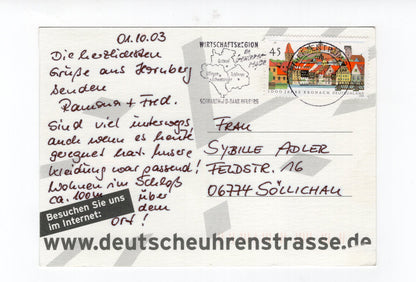 01.10.03
Die herzlichsten
Grüße aus Hornberg
senden
Ramona + Fred.
Sind viel unterwegs,
auch wenn es heute
geregnet hat. Unsere
Kleidung war passend!
Wohnen im Schloß
ca. 100m über
dem
Ort!
Besuchen Sie uns
im Internet:
www.deutscheuhrenstrasse.de
WIRTSCHAFTSREGION
SCHWARZWALD-BAAR-HEUBERG
45
1000 JAHRE KRONACH
Frau
SYBILLE ADLER
FELDSTR. 16
06774 SÖLLICHAU